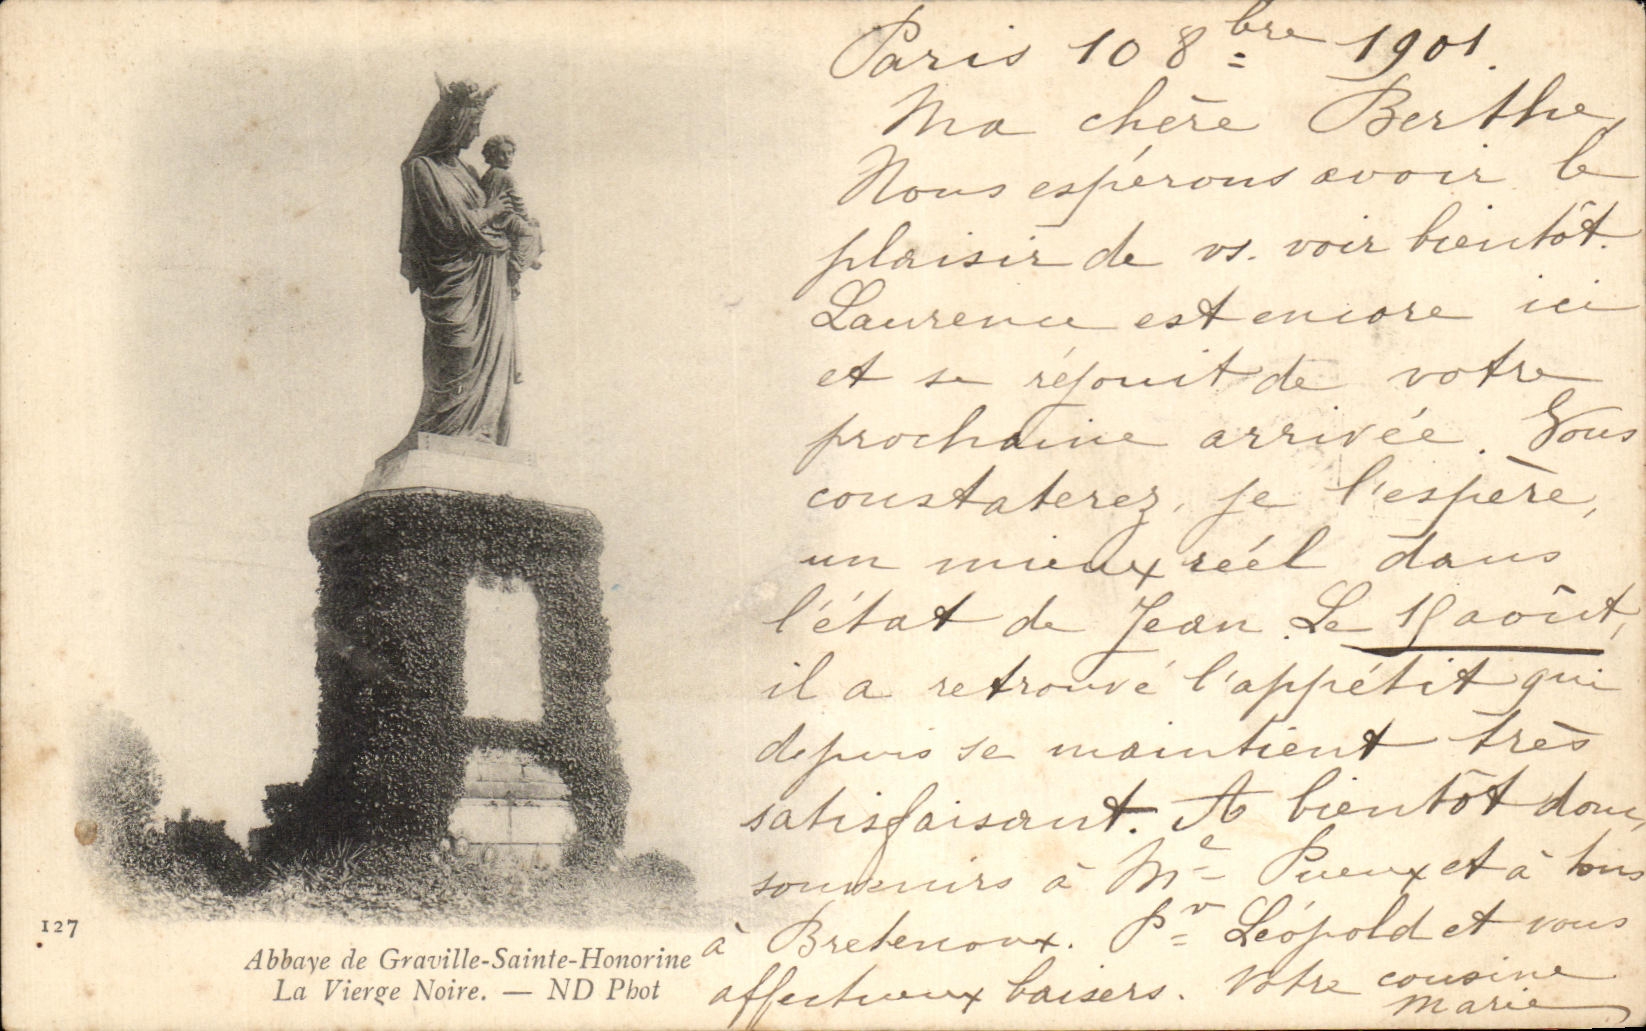 Paris 10 8bre 1901.
Ma chère Berthe,
Nous espérons avoir le
plaisir de vs. voir bientôt.
Laurence est encore ici
et se réjouit de votre
prochaine arrivée. Vous
constaterez, je l'espère,
un mieux réél dans
l'état de Jean. Le 15 août,
il a retrouvé l'appétit qui
depuis se maintient très
satisfaisant. A bientôt donc,
souvenirs à Me et à tous
à Bretenoux. Pr Léopold et vous
affectueux baisers. Votre cousine
Marie
127
Abbaye de Graville-Sainte-Honorine
La Vierge Noire. — ND Phot